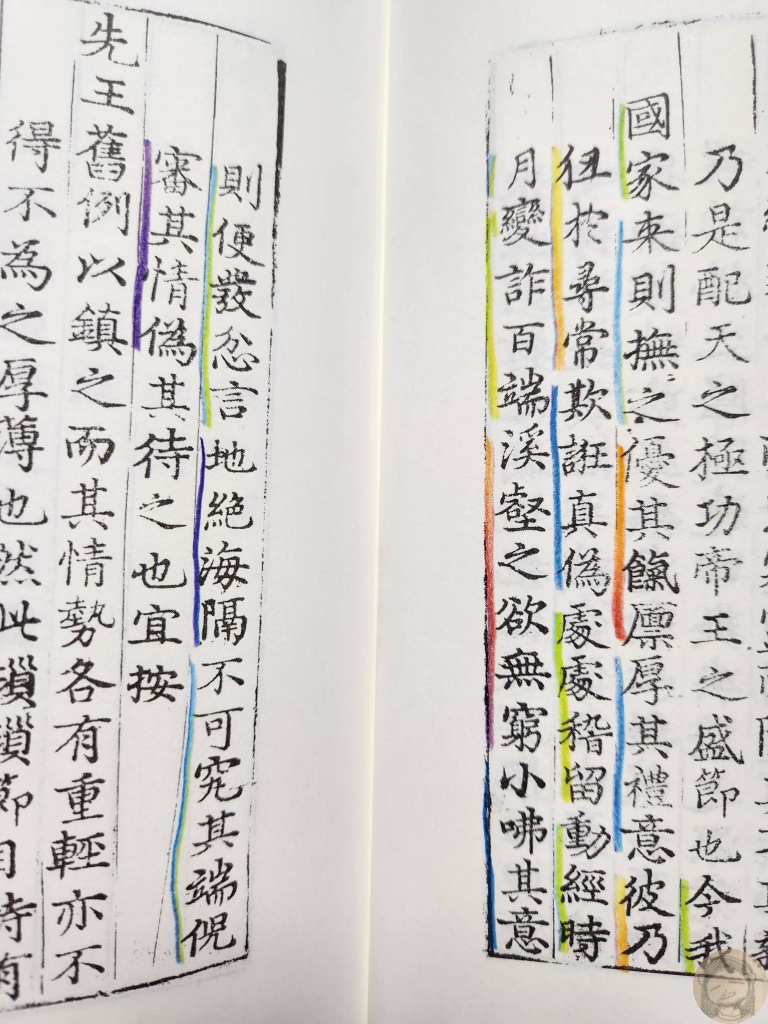 乃是配天之極功帝王之盛節也今我
國家来則撫之優其餼廩厚其禮意彼乃
狃於尋常欺誑真偽處處稽留動經時
月變詐百端溪壑之欲無窮小咈其意
則便發忿言地絶海隔不可究其端倪
審其情偽其待之也宜按
先王舊例以鎮之而其情勢各有重輕亦不
得不為之厚薄也然此瑣瑣節目特有